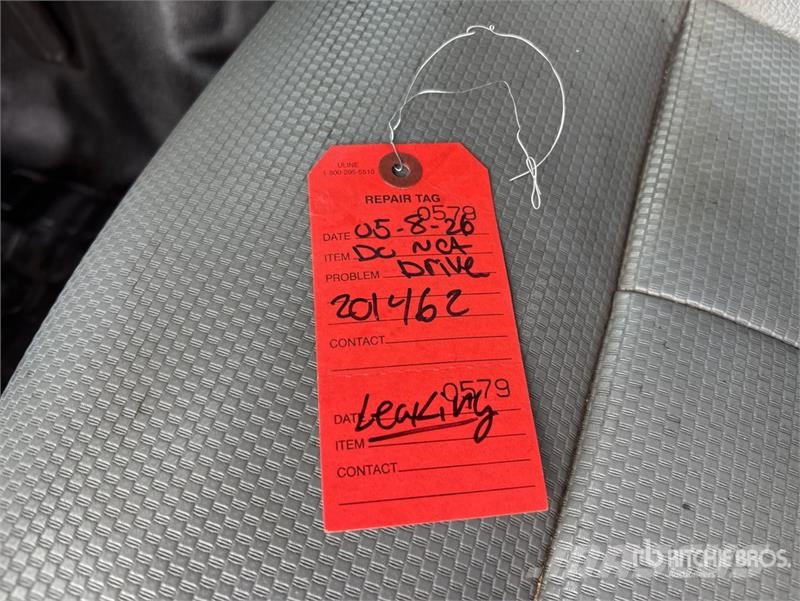 ULINE
1-800-295-5510
REPAIR TAG
0579
DATE 05-8-26
ITEM Do Not
PROBLEM Drive
201462
CONTACT
0579
DATE Leaking
ITEM
CONTACT
rb RITCHIE BROS.
Auctioneers